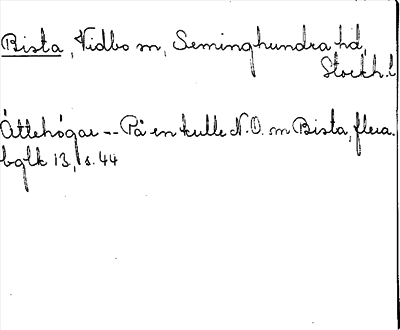 Bista, Vidbo sn, Seminghundra hd,
Stockh. l
Ättehögar -- På en kulle N.O. om Bista, flera.
bglk 13, s. 44